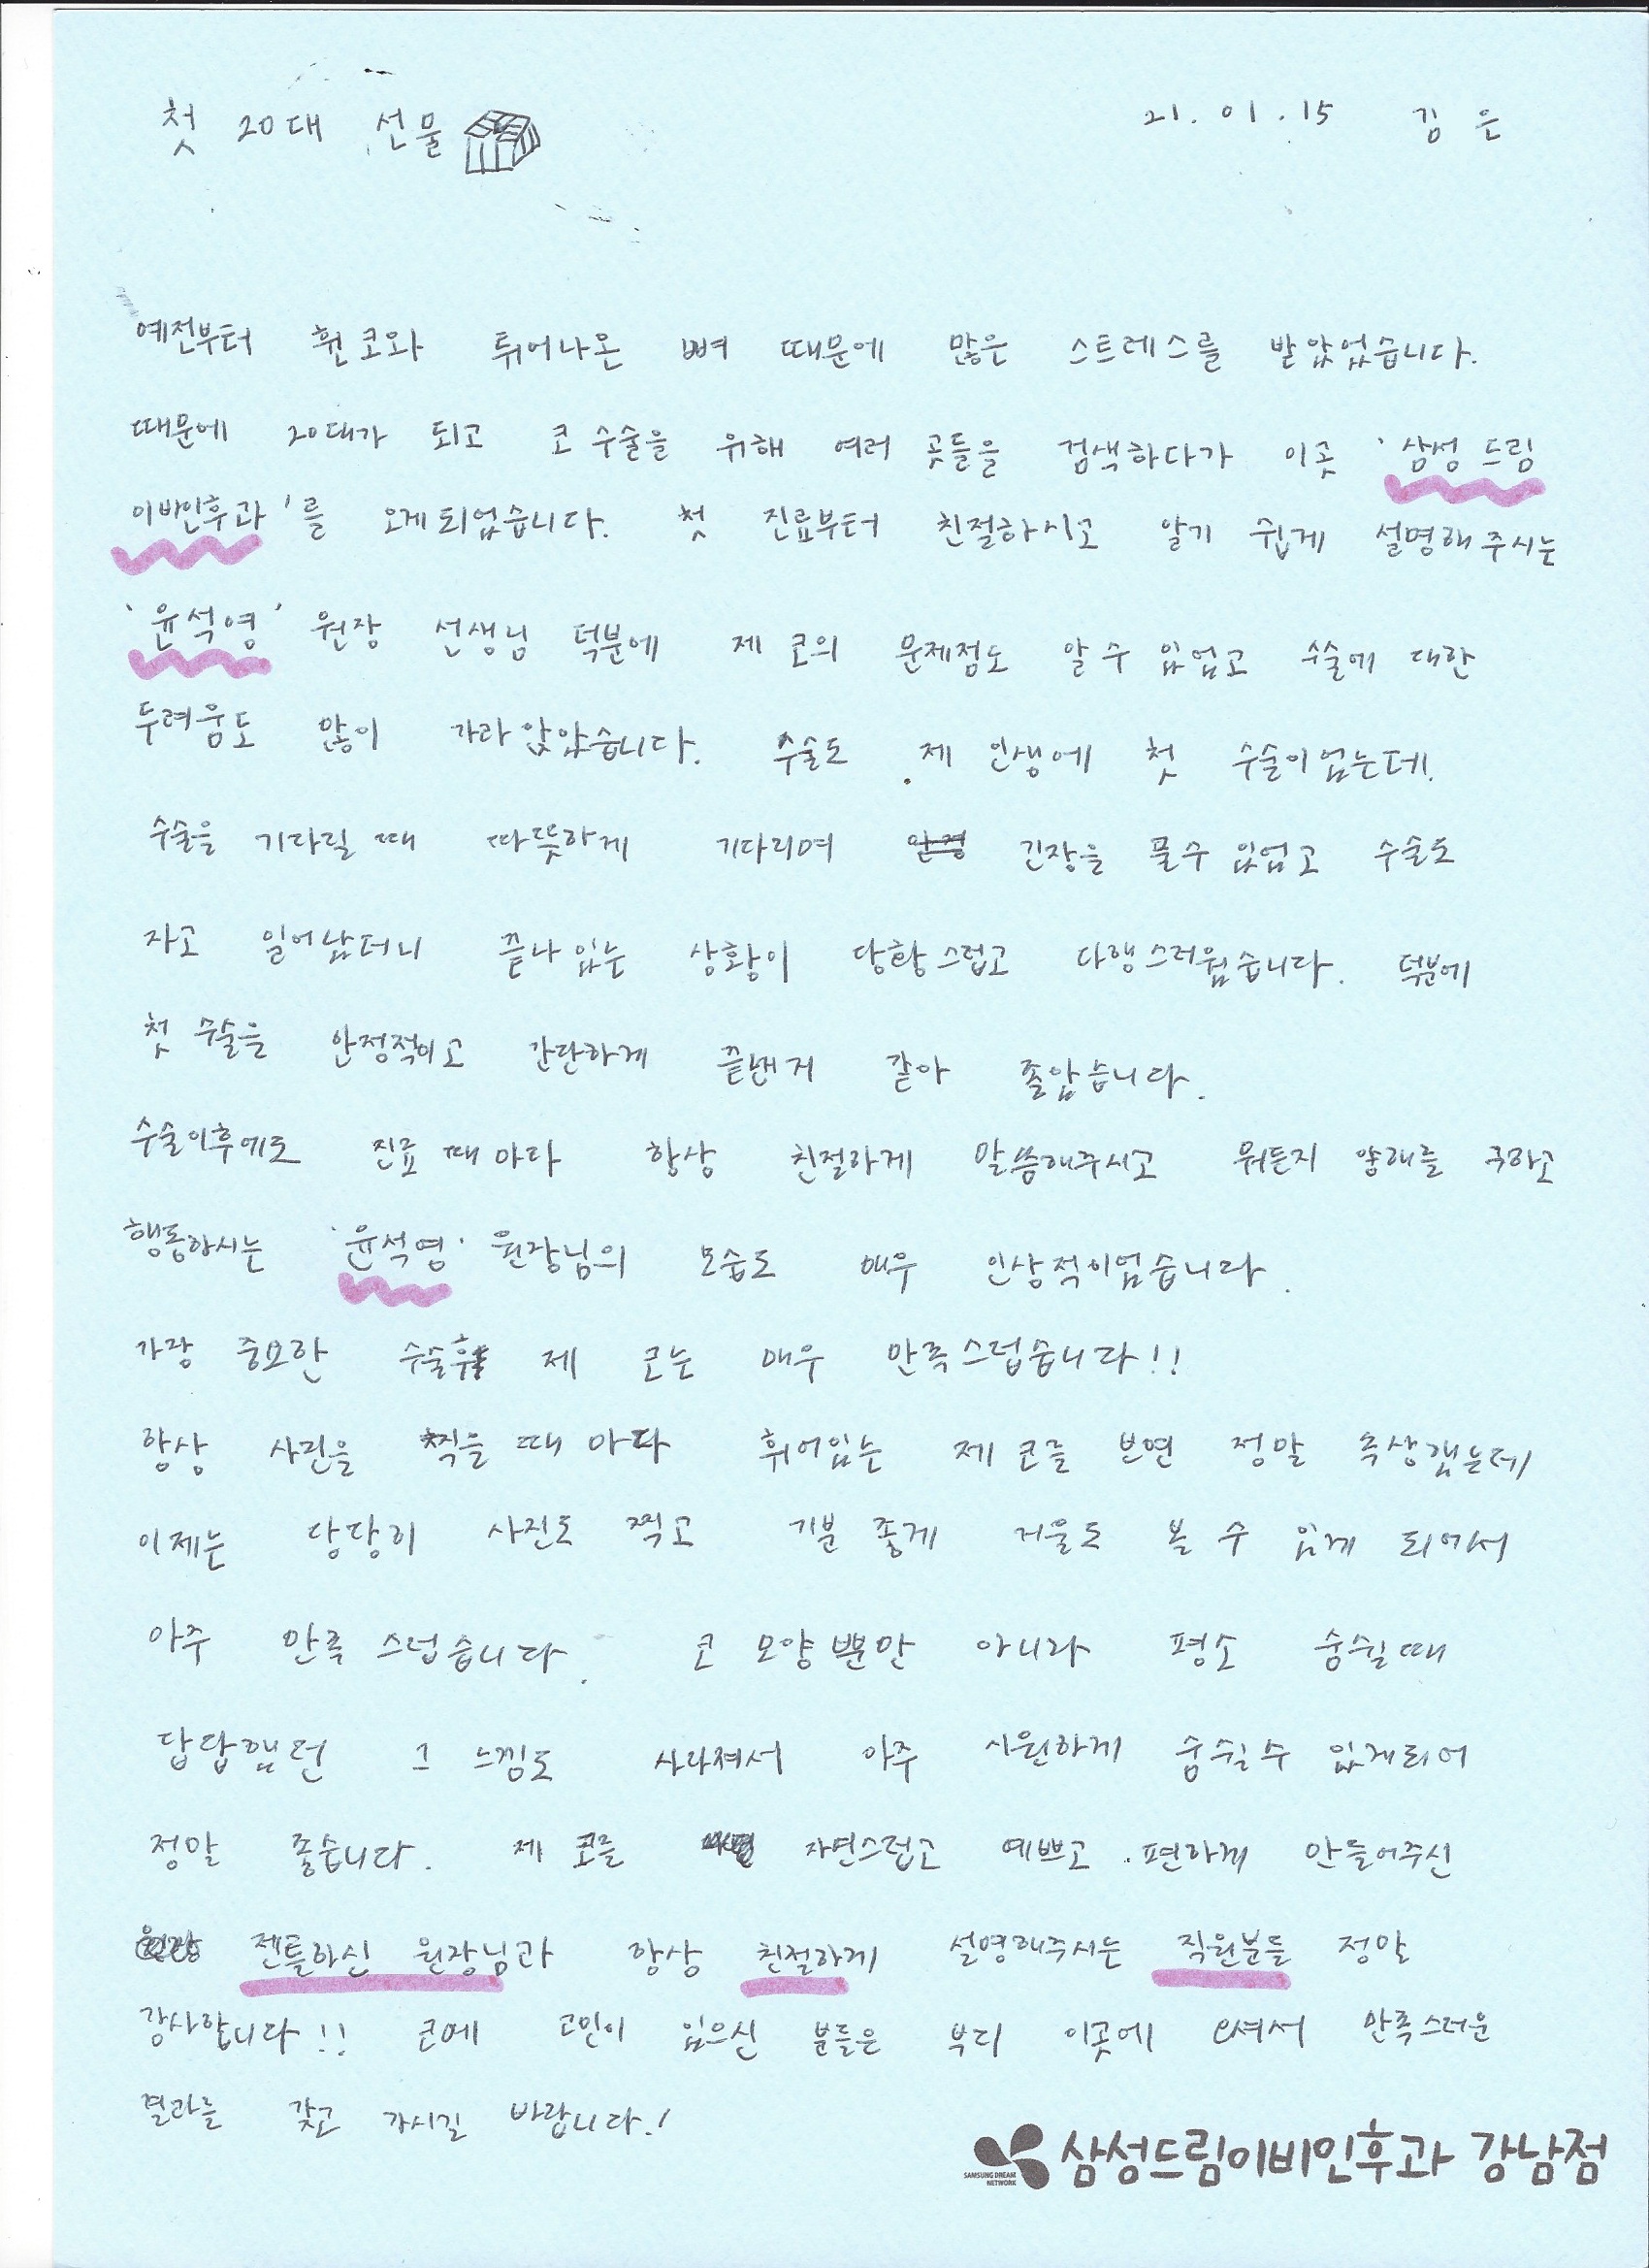 첫 20대 선물
21. 01. 15 김 은
예전부터 휜 코와 튀어나온 뼈 때문에 많은 스트레스를 받았었습니다.
때문에 20대가 되고 코 수술을 위해 여러 곳들을 검색하다가 이곳 '삼성 드림
이비인후과'를 오게되었습니다. 첫 진료부터 친절하시고 알기 쉽게 설명해주시는
'윤석영' 원장 선생님 덕분에 제 코의 문제점도 알 수 있었고 수술에 대한
두려움도 많이 가라앉았습니다. 수술도 제 인생에 첫 수술이었는데.
수술을 기다릴 때 따뜻하게 기다리며 긴장을 풀수 있었고 수술도
자고 일어났더니 끝나있는 상황이 당황스럽고 다행스러웠습니다. 덕분에
첫 수술을 안정적이고 간단하게 끝낸거 같아 좋았습니다.
수술이후에도 진료 때마다 항상 친절하게 말씀해주시고 뭐든지 양해를 구하고
행동하시는 '윤석영' 원장님의 모습도 매우 인상적이었습니다.
가장 중요한 수술후 제 코는 매우 만족스럽습니다!!
항상 사진을 찍을 때 마다 휘어있는 제 코를 보면 정말 속상했는데
이제는 당당히 사진도 찍고 기분 좋게 거울도 볼 수 있게 되어서
아주 만족스럽습니다. 코 모양뿐만 아니라 평소 숨쉴때
답답했던 그 느낌도 사라져서 아주 시원하게 숨쉴수 있게되어
정말 좋습니다. 제 코를 자연스럽고 예쁘고 편하게 만들어주신
젠틀하신 원장님과 항상 친절하게 설명해주시는 직원분들 정말
감사합니다!! 코에 고민이 있으신 분들은 부디 이곳에 오셔서 만족스러운
결과를 갖고 가시길 바랍니다!
SAMSUNG DREAM NETWORK 삼성드림이비인후과 강남점